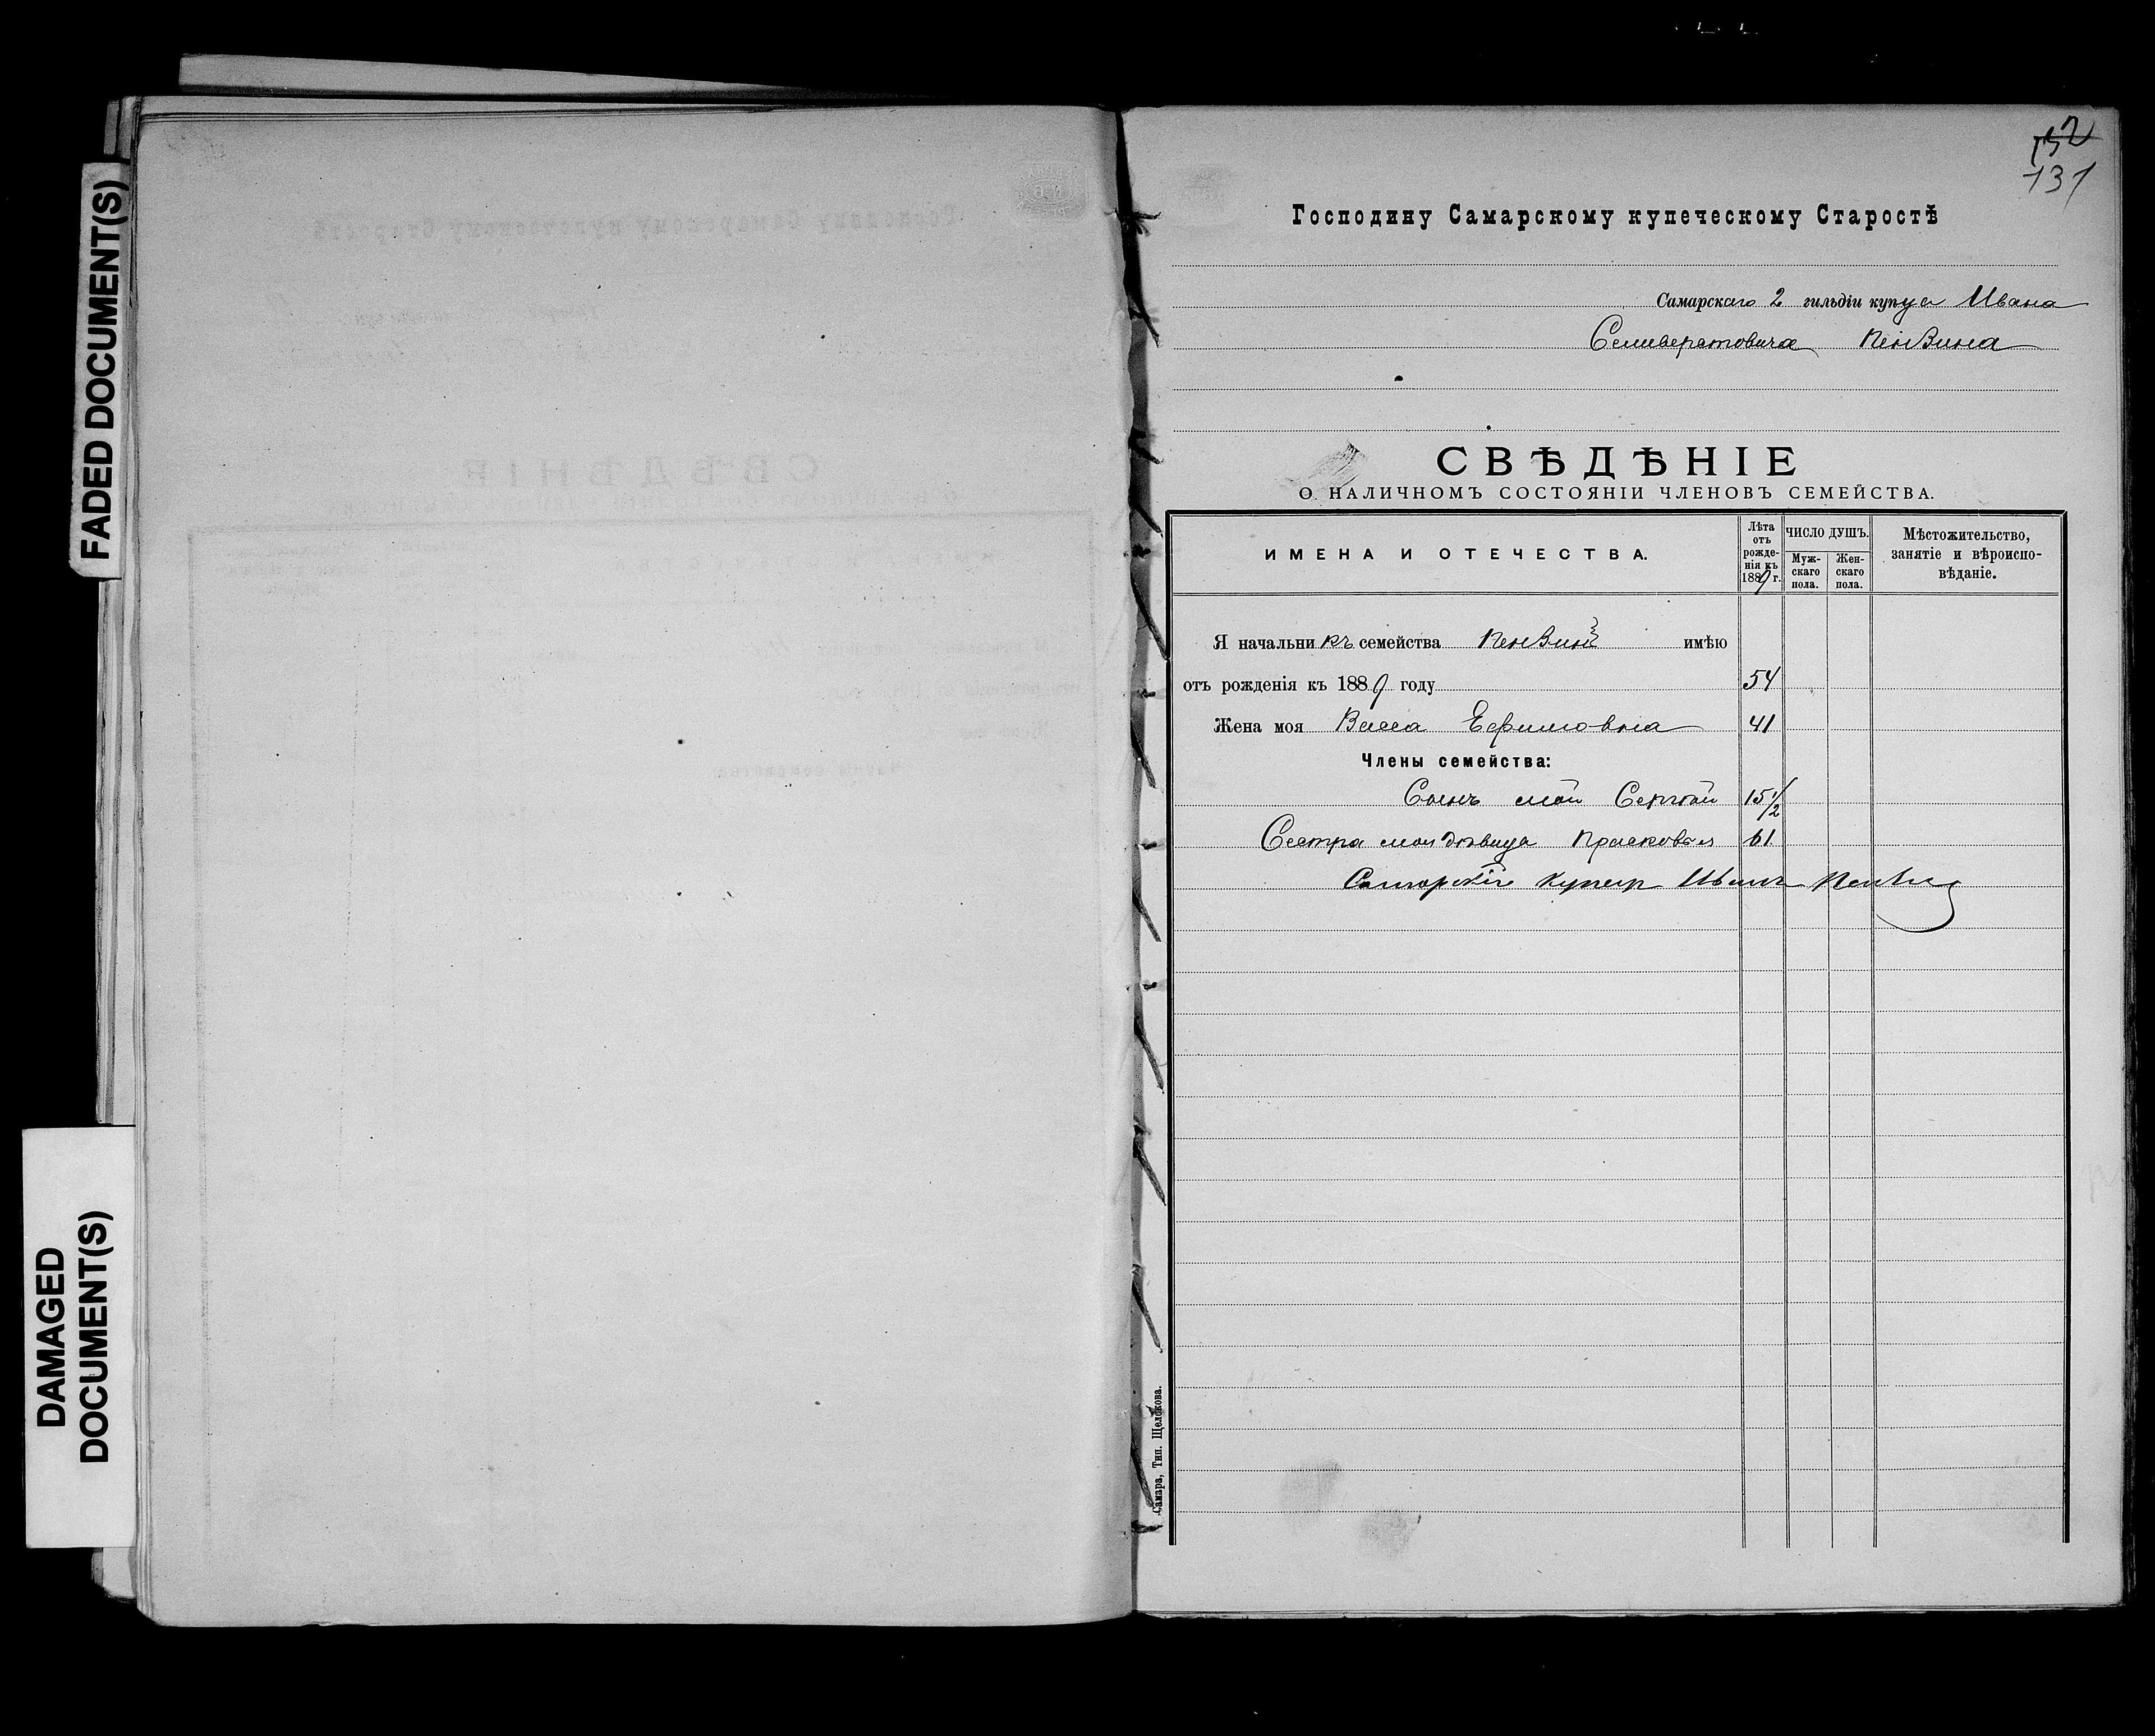 FADED DOCUMENT(S)
DAMAGED
DOCUMENT(S)
152
131
Господину Самарскому купеческому Старостѣ
Самарскаго 2 гильдіи купца Ивана
Селиверстовича Пензина
СВѢДѢНІЕ
О НАЛИЧНОМЪ СОСТОЯНІИ ЧЛЕНОВЪ СЕМЕЙСТВА.
ИМЕНА И ОТЕЧЕСТВА.
Лѣта отъ рожде-нія къ 1889 г.
ЧИСЛО ДУШЪ.
Муж-скаго пола.
Жен-скаго пола.
Мѣстожительство, занятіе и вѣроиспо-вѣданіе.
Я начальникъ семейства Пензинъ имѣю
отъ рожденія къ 1889 году 54
Жена моя Васса Ефимовна 41
Члены семейства:
Сынъ мой Сергѣй 15 1/2
Сестра моя дѣвица Прасковья 61
Самарскій купецъ Иванъ Пензинъ
Самара, Тип. Щелокова.